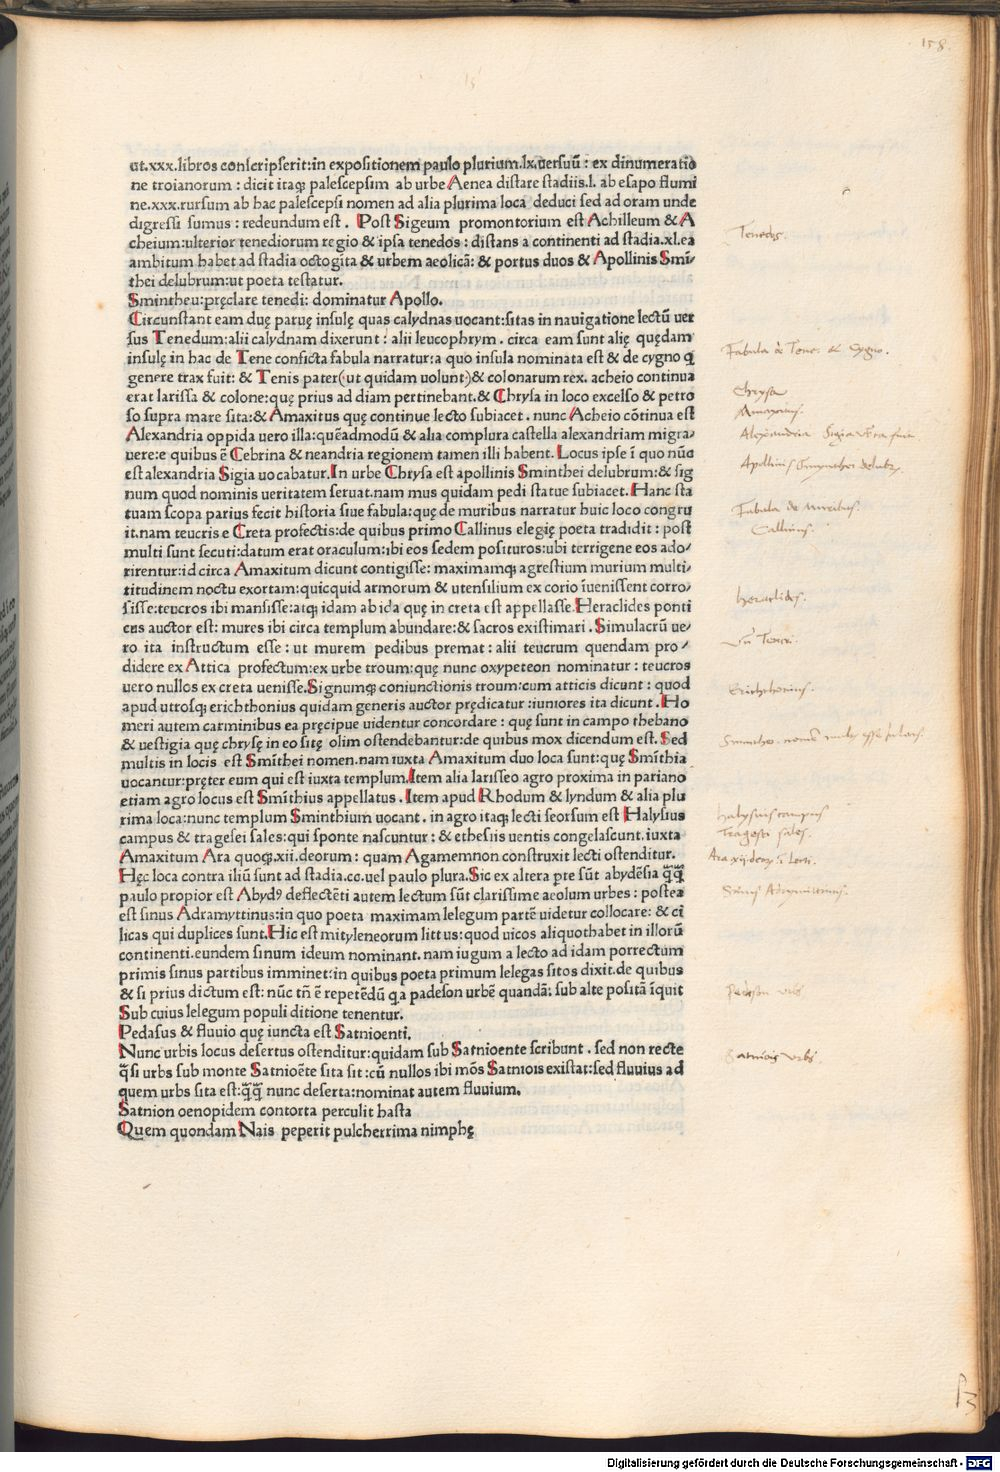 158
ut.xxx.libros conscripserit:in expositionem paulo plurium.lx.uersuū : ex dinumeratio
ne troianorum : dicit itaq; palescepsim ab urbe Aenea distare stadiis.l. ab esapo flumi
ne.xxx.rursum ab hac palescepsi nomen ad alia plurima loca deduci sed ad oram unde
digressi sumus : redeundum est . Post Sigeum promontorium est Achilleum & A
cheium:ulterior tenediorum regio & ipsa tenedos : distans a continenti ad stadia.xl.ea
ambitum habet ad stadia octogita & urbem aeolicā: & portus duos & Apollinis Smī/
thei delubrum:ut poeta testatur.
Smintheu:pręclare tenedi: dominatur Apollo.
Circunstant eam duę paruę insulę quas calydnas uocant:sitas in nauigatione lectū uer
sus Tenedum:alii calydnam dixerunt : alii leucophrym . circa eam sunt alię quędam
insulę in hac de Tene conficta fabula narratur:a quo insula nominata est & de cygno q
genere trax fuit: & Tenis pater(ut quidam uolunt)& colonarum rex. acheio continua
erat larissa & colone:quę prius ad diam pertinebant.& Chrysa in loco excelso & petro
so supra mare sita:& Amaxitus quę continue lecto subiacet . nunc Acheio cōtinua est
Alexandria oppida uero illa:quēadmodū & alia complura castella alexandriam migra/
uere:e quibus ē Cebrina & neandria regionem tamen illi habent. Locus ipse ī quo nūc
est alexandria Sigia uocabatur.In urbe Chrysa est apollinis Sminthei delubrum:& sig
num quod nominis ueritatem seruat.nam mus quidam pedi statue subiacet.Hanc sta
tuam scopa parius fecit historia siue fabula:quę de muribus narratur huic loco congru
it.nam teucris e Creta profectis:de quibus primo Callinus elegię poeta tradidit : post
multi sunt secuti:datum erat oraculum:ibi eos sedem posituros:ubi terrigene eos ado/
rirentur:id circa Amaxitum dicunt contigisse: maximamq; agrestium murium multi/
titudinem noctu exortam:quicquid armorum & utensilium ex corio īuenissent corro/
sisse:teucros ibi mansisse:atq; idam ab ida quę in creta est appellasse.Heraclides ponti
cus auctor est: mures ibi circa templum abundare:& sacros existimari . Simulacrū ue/
ro ita instructum esse : ut murem pedibus premat : alii teucrum quendam pro/
didere ex Attica profectum:ex urbe troum:quę nunc oxypeteon nominatur : teucros
uero nullos ex creta uenisse.Signumq; coniunctionis troum:cum atticis dicunt : quod
apud utrosq; erichthonius quidam generis auctor prędicatur :iuniores ita dicunt .Ho
meri autem carminibus ea pręcipue uidentur concordare : quę sunt in campo thebano
& uestigia quę chrysę in eo sitę olim ostendebantur:de quibus mox dicendum est. Sed
multis in locis est Smīthei nomen.nam iuxta Amaxitum duo loca sunt:quę Smīthia
uocantur:pręter eum qui est iuxta templum.Item alia larisseo agro proxima in pariano
etiam agro locus est Smīthius appellatus . Item apud Rhodum & lyndum & alia plu
rima loca:nunc templum Sminthium uocant . in agro itaq; lecti seorsum est Halysius
campus & tragesei sales:qui sponte nascuntur : & ethesiis uentis congelascunt.iuxta
Amaxitum Ara quoq;.xii.deorum : quam Agamemnon construxit lecti ostenditur.
Hęc loca contra iliū sunt ad stadia.cc.uel paulo plura.Sic ex altera pte sūt abydēsia q̄q̄
paulo propior est Abydꝰ deflectēti autem lectum sūt clarissime aeolum urbes : postea
est sinus Adramyttinus:in quo poeta maximam lelegum partē uidetur collocare: & ci
licas qui duplices sunt.Hic est mityleneorum littus:quod uicos aliquothabet in illorū
continenti.eundem sinum ideum nominant. nam iugum a lecto ad idam porrectum
primis sinus partibus imminet:in quibus poeta primum lelegas sitos dixit.de quibus
& si prius dictum est: nūc tñ ē repetēdū q̨a padeson urbē quandā: sub alte positā īquit
Sub cuius lelegum populi ditione tenentur.
Pedasus & fluuio quę iuncta est Satnioenti.
Nunc urbis locus desertus ostenditur:quidam sub Satnioente scribunt . sed non recte
q̄si urbs sub monte Satnioēte sita sit:cū nullos ibi mōs Satniois existat:sed fluuius ad
quem urbs sita est:q̄q̄ nunc deserta:nominat autem fluuium.
Satnion oenopidem contorta perculit hasta
Quem quondam Nais peperit pulcherrima nimphę
Tenedos.
Fabula de Tene. & Cygno.
Chrysa
Amaxitus.
Alexandria Sigia
Apollinis Sminthei delubr.
Fabula de muribus.
Callinus.
Heraclides.
Erichthonius.
Halysius campus
Tragesei sales.
Ara xii deor. ī Lecti.
Sinus Adramittinus.
Padeson urbs
Satniois urbs
Digitalisierung gefördert durch die Deutsche Forschungsgemeinschaft - DFG